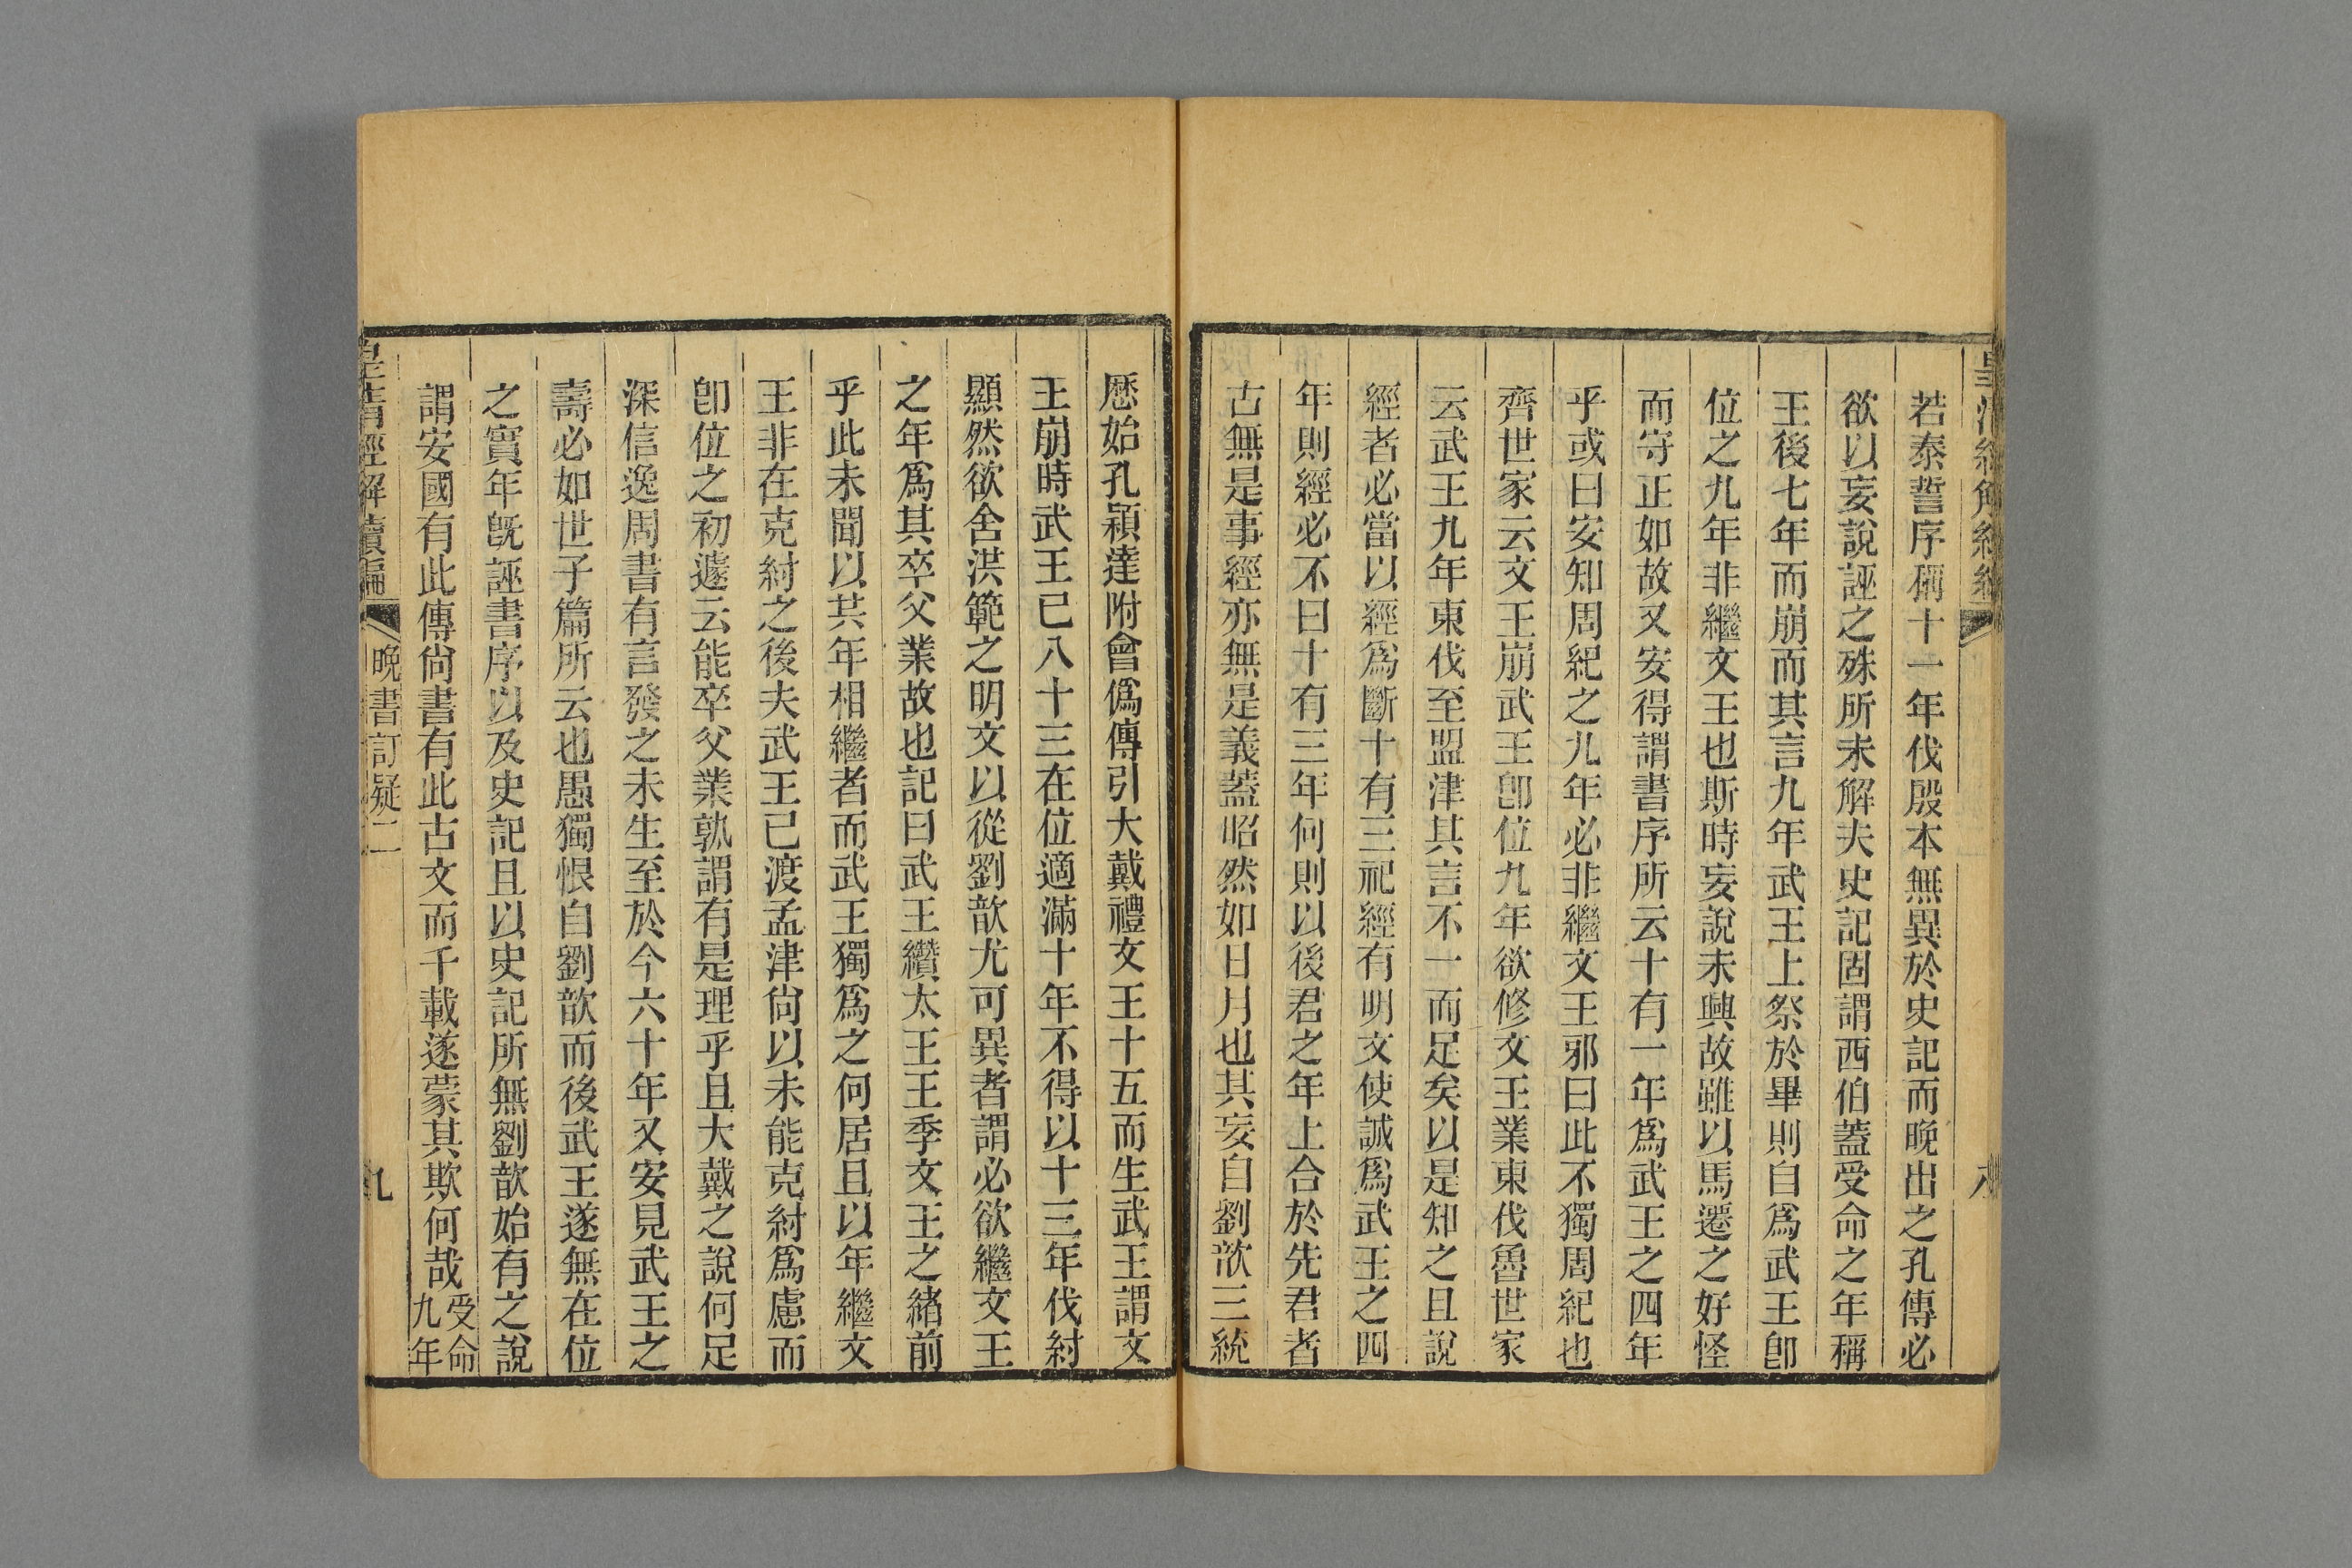 若泰誓序稱十一年伐殷本無異於史記而晚出之孔傳必
欲以妄說誣之殊所未解夫史記固謂西伯蓋受命之年稱
王後七年而崩而其言九年武王上祭於畢則自爲武王卽
位之九年非繼文王也斯時妄說未興故雖以馬遷之好怪
而守正如故又安得謂書序所云十有一年爲武王之四年
乎或曰安知周紀之九年必非繼文王邪曰此不獨周紀也
齊世家云文王崩武王卽位九年欲修文王業東伐魯世家
云武王九年東伐至盟津其言不一而足矣以是知之且說
經者必當以經爲斷十有三祀經有明文使誠爲武王之四
年則經必不曰十有三年何則以後君之年上合於先君者
古無是事經亦無是義蓋昭然如日月也其妄自劉歆三統
歷始孔穎達附會僞傳引大戴禮文王十五而生武王謂文
王崩時武王已八十三在位適滿十年不得以十三年伐紂
顯然欲舍洪範之明文以從劉歆尤可異者謂必欲繼文王
之年爲其卒父業故也記曰武王纘太王王季文王之緒前
乎此未聞以其年相繼者而武王獨爲之何居且以年繼文
王非在克紂之後夫武王已渡孟津尙以未能克紂爲慮而
卽位之初遽云能卒父業孰謂有是理乎且大戴之說何足
深信逸周書有言發之未生至於今六十年又安見武王之
壽必如世子篇所云也愚獨恨自劉歆而後武王遂無在位
之實年旣誣書序以及史記且以史記所無劉歆始有之說
謂安國有此傳尙書有此古文而千載遂蒙其欺何哉受命
九年
皇清經解續編
晚書訂疑二
九